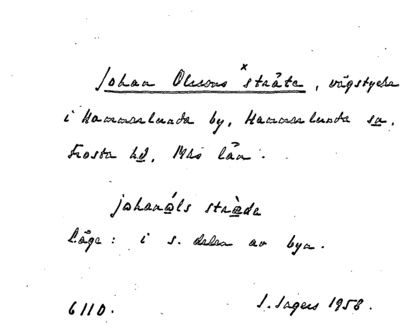 Johan Olssons ˣstråta, vägstycke
i Hammarlunda by, Hammarlunda sn,
Frosta hd, Mhs län.
johanáls stràda
Läge: i s. delen av byn.
6110. I. Ingers 1958.